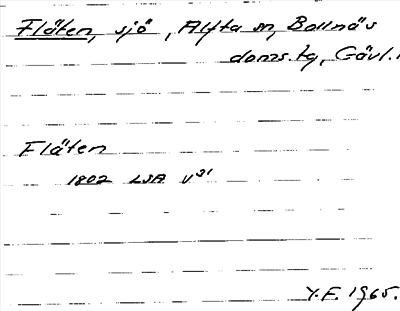 Fläten, sjö, Alfta sn, Bollnäs
doms.tg, Gävl.
Fläten
1802 LSA V31
Y.F. 1965.